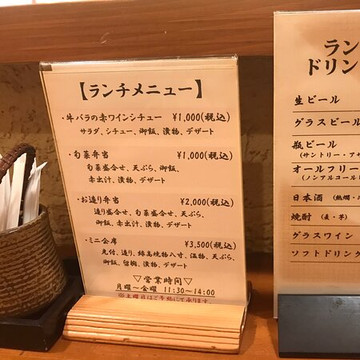 【ランチメニュー】
・牛バラの赤ワインシチュー ¥1,000(税込)
サラダ、シチュー、御飯、漬物、デザート
・旬菜弁当 ¥1,000(税込)
旬菜盛合せ、天ぷら、御飯、
赤出汁、漬物、デザート
・お造り弁当 ¥2,000(税込)
造り盛合せ、旬菜盛合せ、天ぷら、
御飯、赤出汁、漬物、デザート
・ミニ会席 ¥3,500(税込)
先付、造り、
八寸、温物、天ぷら、
御飯、留椀、漬物、デザート
▽営業時間▽
月曜～金曜 11:30～14:00
ラン
ドリン
生ビール
グラスビール
瓶ビール
(サントリー・アサ
オールフリー
(ノンアルコール
日本酒
焼酎 (麦・芋)
グラスワイン
ソフトドリンク